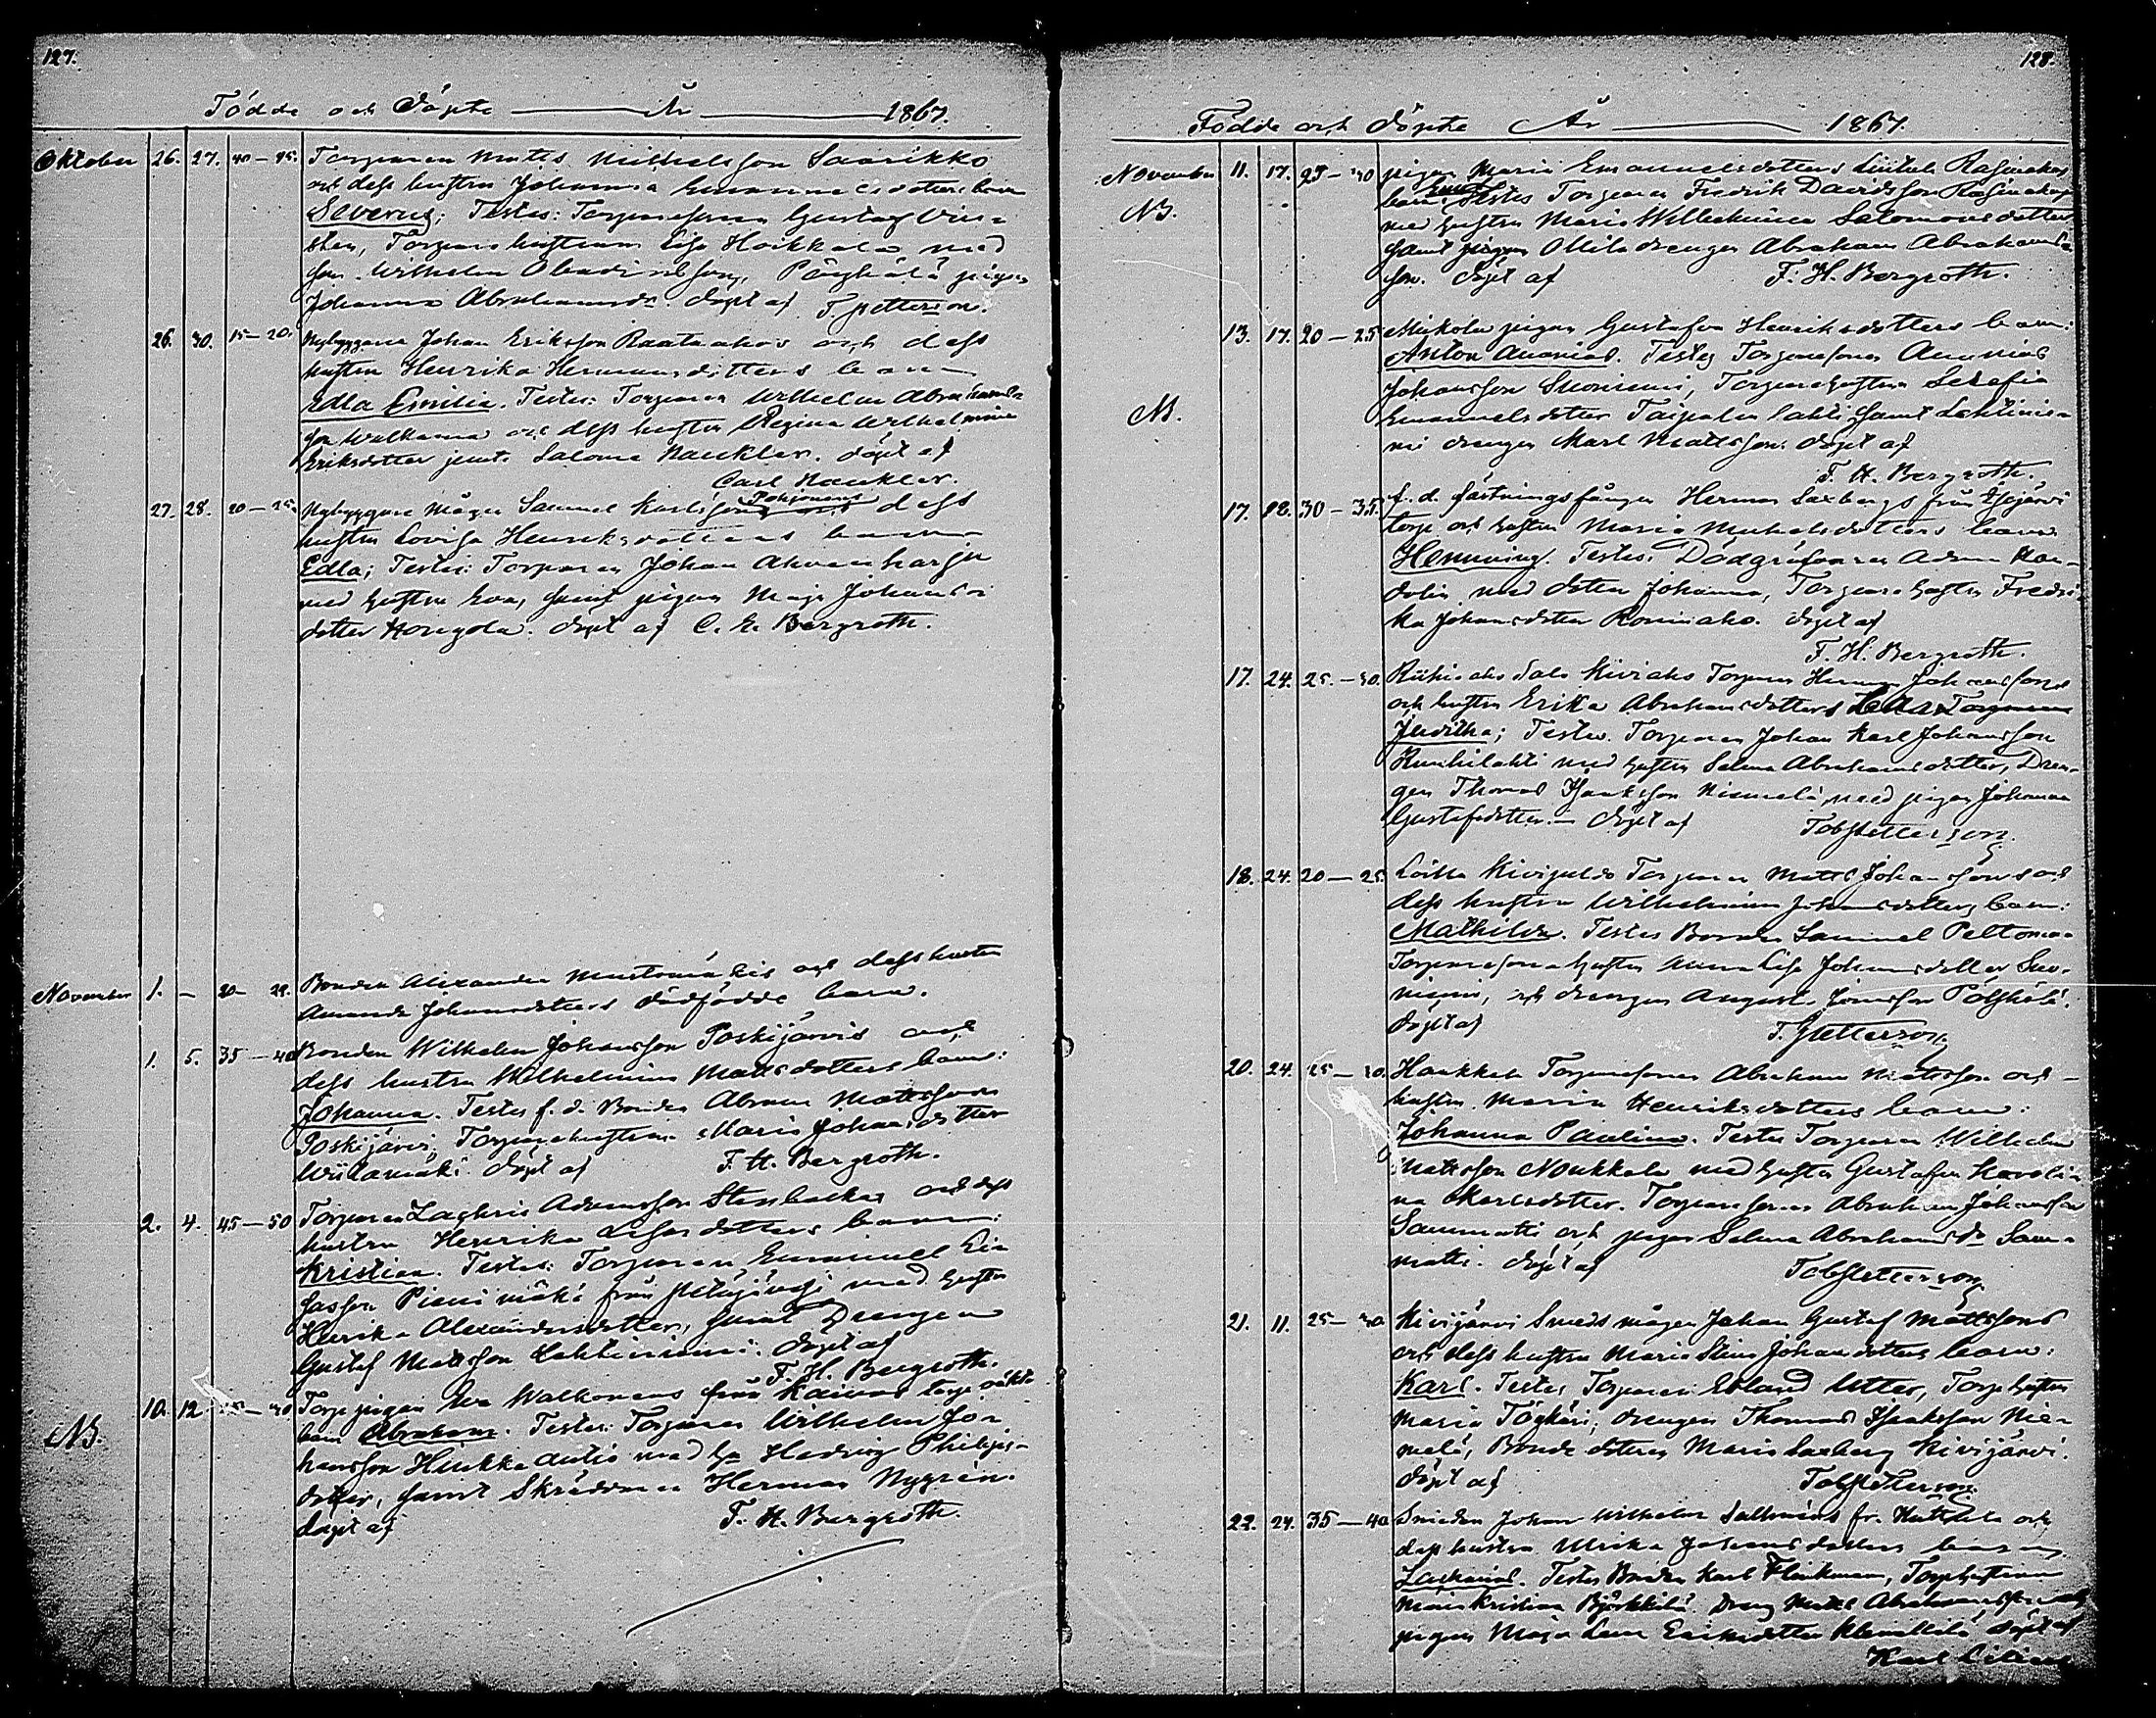 127.
Födde och Döpte År 1867.
Oktober 26. 27. 40-45. Torparen Matts Michelsson Saarikko
och dess hustru Johanna Emanuelsdotters barn
Severus; Testes: Torparesonen Gustaf
Torpare hustrun Lisa Haikkala med
son Wilhelm pigan
Johanna Abrahamsdr döpt af T. Petterson.
26. 30. 15-20. Nybyggare Johan Eriksson Raataahos och dess
hustru Henrika Hermansdotters barn
Edla Emilia. Testes: Torparen Wilhelm Abrahams-
son och dess hustru Regina Wilhelmina
Eriksdotter jemte Salome Nauckler. döpt af
Carl Nauckler.
27. 28. 20-25. Nybyggare mågen Samuel Karlsson Pohjonens dess
hustru Lovisa Henriksdotters barn
Edla; Testes: Torparen Johan Ahvenharju
med hustru Eva, samt pigan Maja Johans-
dotter Hongola. döpt af C. E. Bergroth.
November 1. - 20- Bonden Alexander Mustamäkis och dess hustru
Amanda Johansdotters dödfödde barn.
1. 5. 35-40 Bonden Wilhelm Johansson Poskijärvis och
dess hustru Wilhelmina Mattsdotters barn:
Johanna. Testes f. d. Bonden Abram Mattsson
Poskijärvi, Torparehustrun Maria Johansdotter
Wiitamäki. döpt af F. H. Bergroth.
2. 4. 45-50 Torparen Zachris Adamsson Stenbackas och dess
hustru Henrika dotters barn:
Kristian. Testes: Torparen Emanuel
Pienimäki från Petäjäne med hustru
Henrika Alexandersdotter, samt Drengen
Gustaf Mattsson Lahtiniemi. döpt af
F. H. Bergroth.
NB. 10. 12. Torp pigan Eva Walkonens från Kaivos torp oäkta
barn Abraham. Testes: Torparen Wilhelm Jo-
hansson autio med hu Hedvig Philips-
dotter, samt Skräddaren Herman Nygrén.
döpt af F. H. Bergroth.
128.
Födde och Döpte År 1867.
November 11. 17. 25-30 pigan Maria Emanuelsdotters
NB. barn Testes Torparen Fredrik Davidsson
med hustru Maria Wilhelmina Salomonsdotter
samt drengen Abraham Abrahams-
son. döpt af F. H. Bergroth.
13. 17. 20-25 Mikola pigan Gustafva Henriksdotters barn:
Anton Ananias. Testes Torparesonen Ananias
Johansson Suoniemi, Torparehustrun Serafia
NB. Emanuelsdotter Taipalen lahti samt Lahtinie-
mi drengen Karl Mattsson. döpt af
F. H. Bergroth.
17. 18. 30-35. f. d. fästningsfången Herman Saxbergs från
torp och hustru Maria Michelsdotters barn
Henning. Testes: Dödgräfvaren Adam
med dotter Johanna, Torpare hustru Fredri-
ka Johansdotter Roiniaho. döpt af
F. H. Bergroth.
17. 24. 25.-30. Riihiaho Salo Kiviaho Torparen Herman Johanssons
och hustru Erika Abrahamsdotters
Juditha; Testes. Torparen Johan Karl Johansson
Ruuhilahti med hustru Selma Abrahamsdotter, Dren-
gen Thomas Isaksson Niemelä med pigan Johanna
Gustafsdotter. - döpt af Tob Petterson
18. 24. 20-25. Kivipuldo Torparen Matts Johanssons och
dess hustru Wilhelmina Johansdotters barn:
Mathilda. Testes Bonden Samuel Peltonen
Torparesone hustru Anna Lisa Johansdotter Suo-
niemi, och drengen August
döpt af T. Petterson
20. 24. 25-30. Haukkala Torparesonen Abraham Mattsson och
hustru Maria Henriksdotters barn:
Johanna Paulina. Testes Torparen Wilhelm
Mattsson Noukkala med hustru Gustafva Karoli-
na Karlsdotter. Torparesonen Abraham Johansson
Sammatti och pigan Selma Abrahamsdr Sam-
matti. döpt af Tob Petterson
21. 11. 25-30. Kivijärvi Smeds mågen Johan Gustaf Mattssons
och dess hustru Maria Stina Johansdotters barn:
Karl. Testes Torparen Erland Utter, Torp hustru
Maria drengen Thomas Isaksson Nie-
melä, Bonde dotern Maria Saxberg Kivijärvi.
döpt af Tob Petterson
22. 24. 35-40 Smeden Johan Wilhelm Sallméns fr. och
dess hustru Ulrika Johansdotters barn
Zacharias. Testes Bonden Karl Flinkman, Torphustrun
Maria Kristina Björkkilä. Dreng Matts Abrahamsson och
pigan Maja Lena Eriksdotter döpt af
Karl